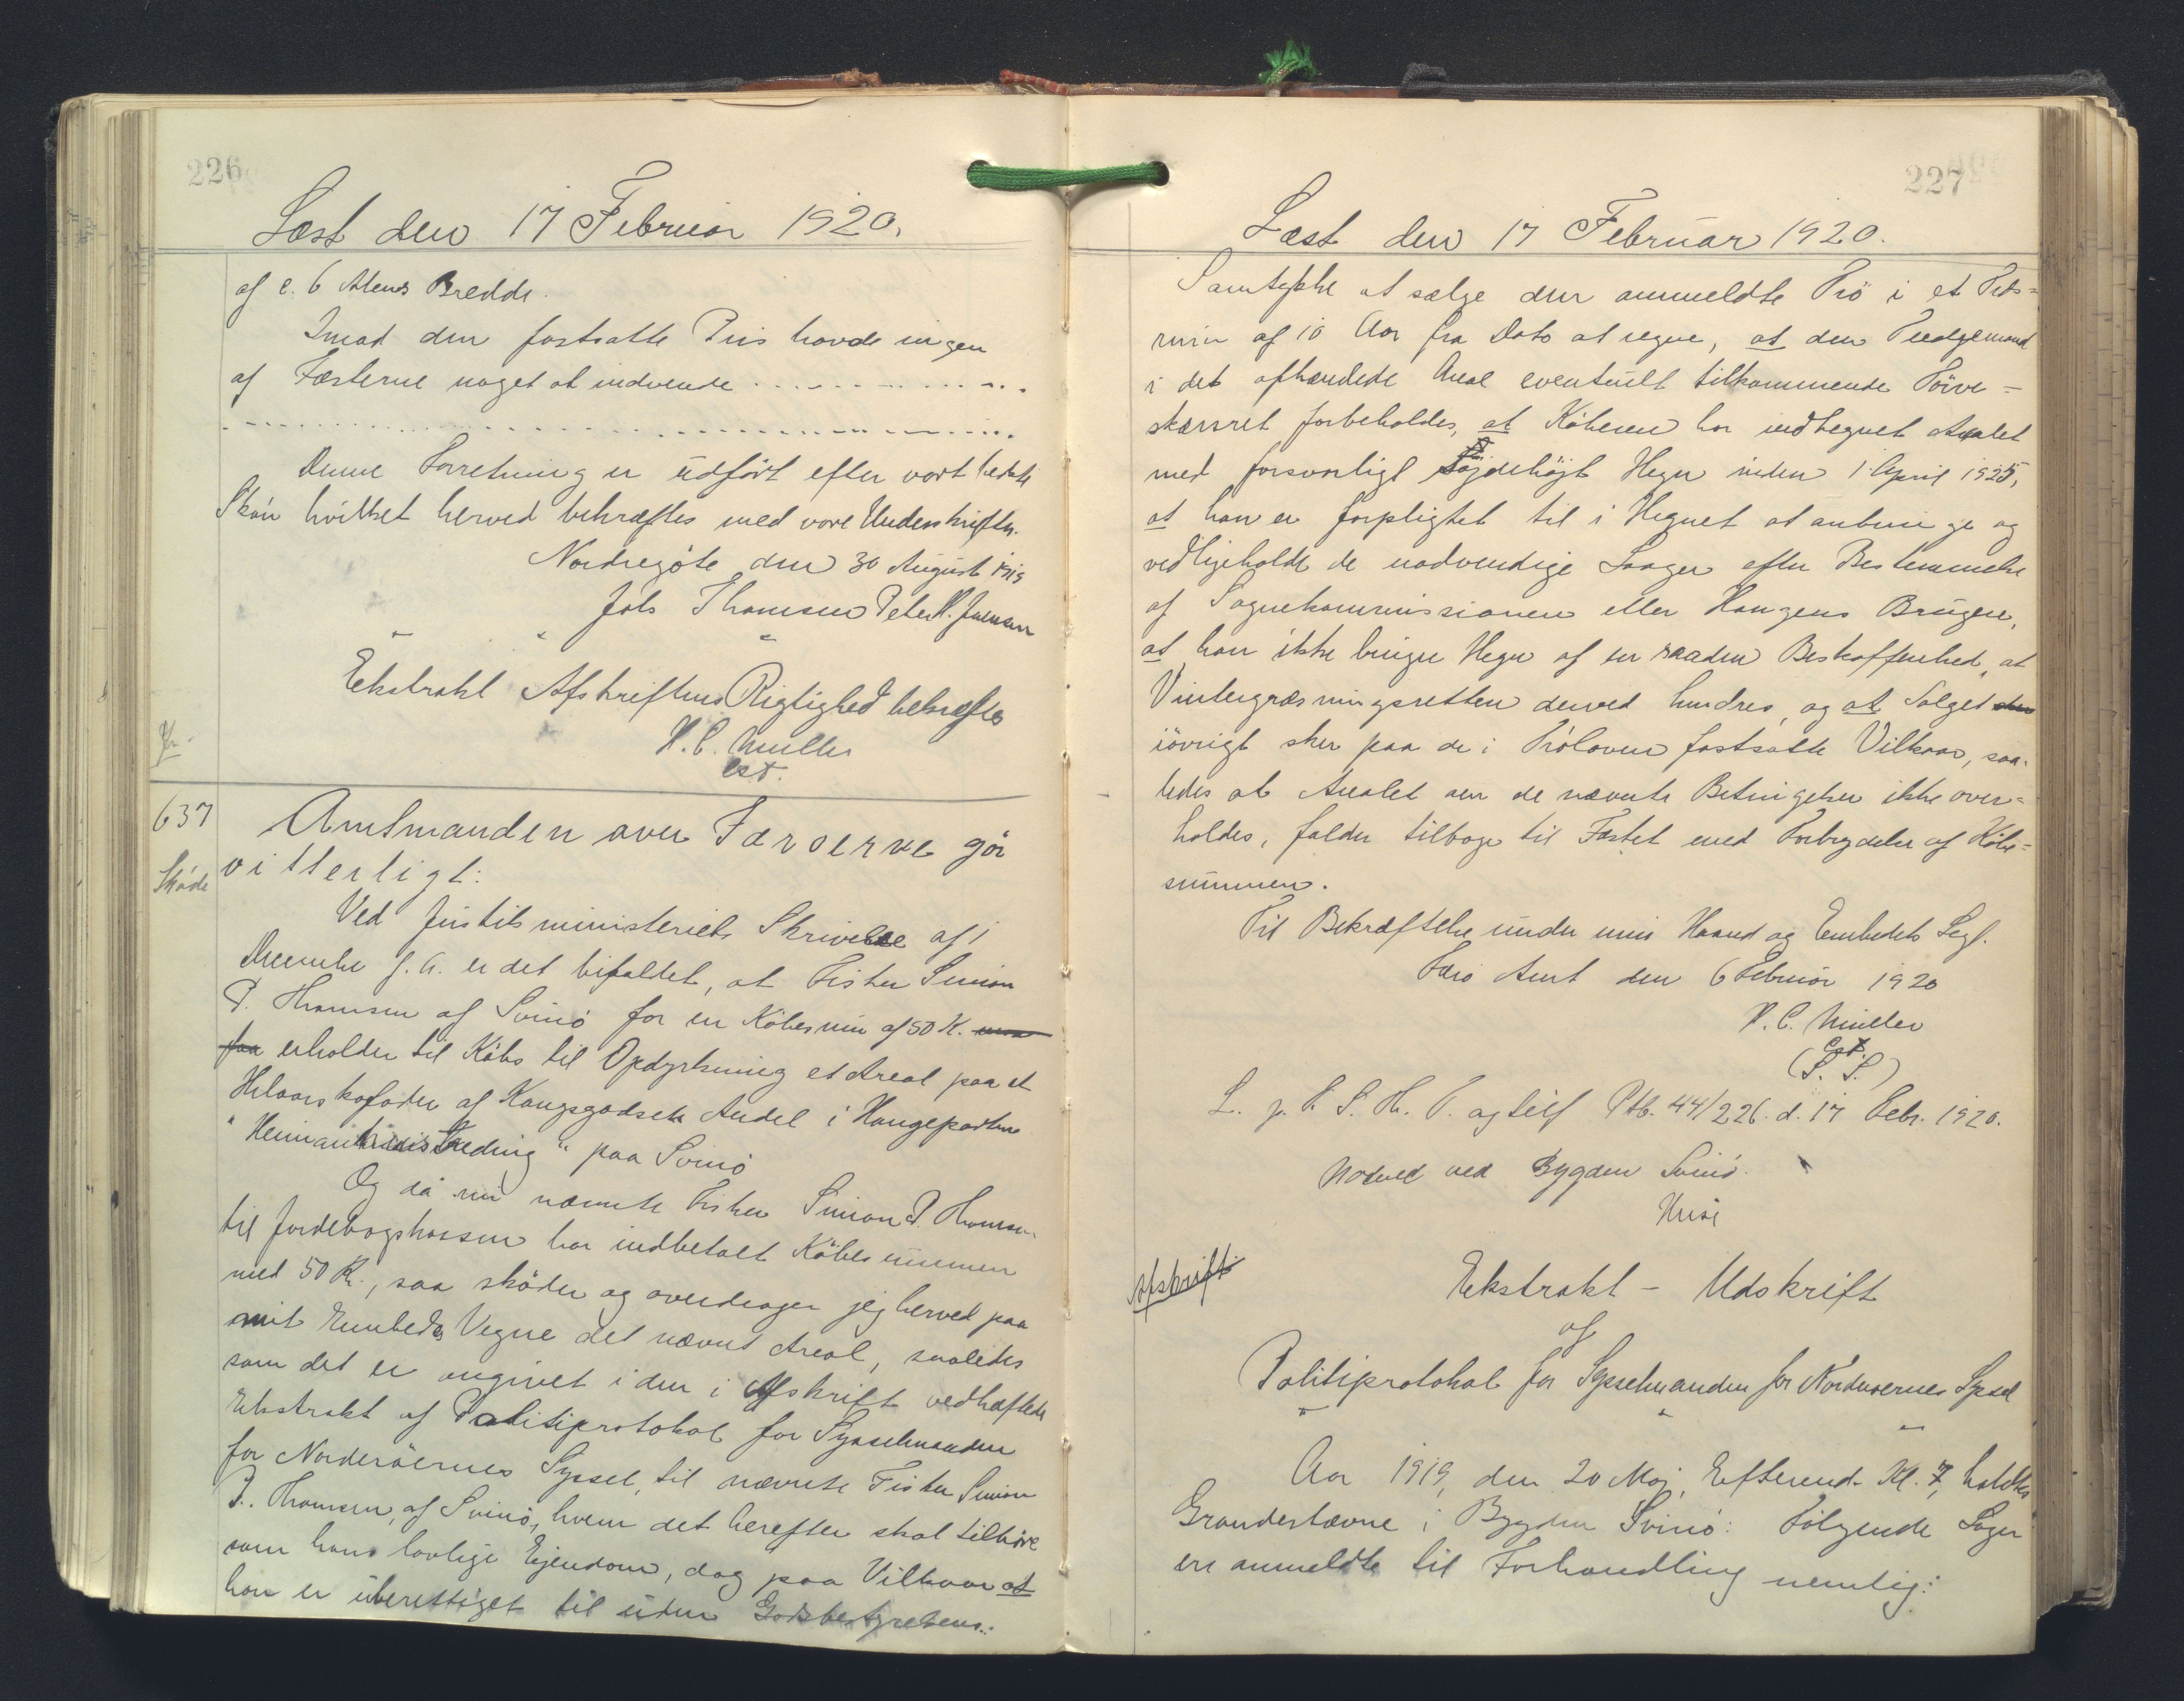 226
Læst den 17 Februar 1920.
af c. 6 Alens Bredde.
Imod den fastsatte Pris havde ingen
af Fæsterne noget at indvende
Denne Forretning er udført efter vort bedste
Skön hvilket herved bekræftes med vore Underskrifter.
Nordregöte den 30 August 1919
Johs Thomsen Peter H. Joensen
Ekstrakt Afskriftens Rigtighed bekræftes
H. C. Müller
cst.
637
Sköde
Amtmanden over Færøerne gör
vitterligt:
Ved Justitsministeriets Skrivelse af 1
December f. A. er det bifaldet, at Fisker Simon
P. Thomsen af Svinö for en Köbesum af 50 K.
faa erholder til Köbs til Opdyrkning et Areal paa et
af Kongsgodsets Andel i Haugeparten
paa Svinö
Og da nu nævnte Fisker Simon P. Thomsen
til Jordebogskassen har indbetalt Köbesummen
med 50 Kr., saa sköder og overdrager jeg herved paa
mit Embeds Vegne det nævnte Areal, saaledes
som det er angivet i den i Afskrift vedhæftede
Ekstrakt af Politiprotokol for Sysselmanden
for Norderöernes Syssel, til nævnte Fisker Simon
P. Thomsen, af Svinö, hvem det herefter skal tilhöre
som hans lovlige Ejendom, dog paa Vilkaar at
han er uberettiget til uden Godsbestyrelsens
227
Læst den 17 Februar 1920.
Samtykke at sælge den anmeldte Trö i et Tids=
rum af 10 Aar fra Dato at regne, at den
i det afhændede Areal eventuelt tilkommende Törve=
skærsret forbeholdes, at Köberen har indhegnet Arealet
med forsvarligt Hegn inden 1 April 1925,
at han er forpligtet til i Hegnet at anbringe og
vedligeholde de nödvendige Laager efter Bestemmelse
af Sognekommissionen eller Haugens Brugere,
at han ikke bruger Hegn af en saadan Beskaffenhed, at
Vintergræsningsretten derved hindres, og at Salget sker
iövrigt sker paa de i Tröloven fastsatte Vilkaar, saa=
ledes at Arealet om de nævnte Betingelser ikke over=
holdes, falder tilbage til Fæstet med Fortrydelse af Köbe=
summen.
Til Bekræftelse under min Haand og Embedets Segl.
Færö Amt den 6 Februar 1920
H. C. Müller
cst.
(L. S.)
L. p. F. S. K. T. og tilf Ptb. 44/226. d. 17 Febr. 1920.
Noteret ved Bygden Svinö.
Afskrift
Ekstrakt - Udskrift
af
Politiprotokol for Sysselmanden for Norderöernes Syssel
Aar 1919, den 20 Maj, Eftermd. Kl. 7, holdtes
Grandestævne i Bygden Svinö: Fölgende Sager
ere anmeldte til Forhandling nemlig: